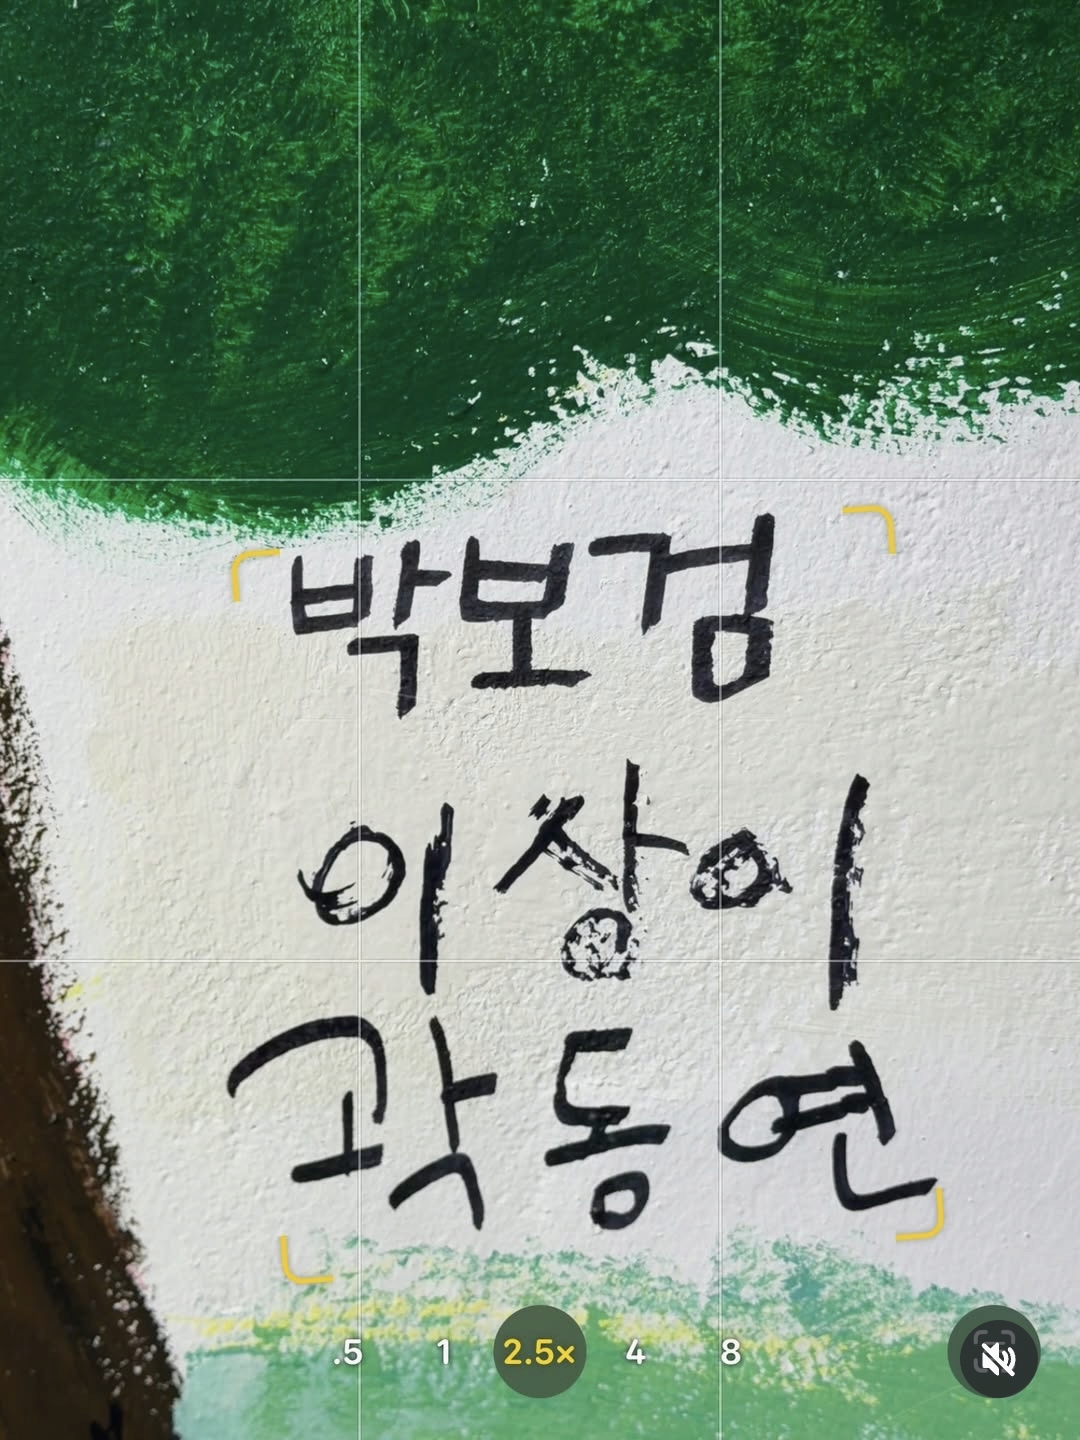 박보검
이상이
곽동연
.5 1 2.5× 4 8